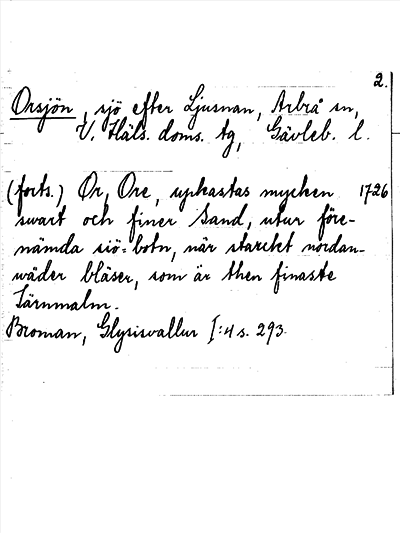 2.
Orsjön, sjö efter Ljusnan, Arbrå sn,
V. Häls. doms. tg, Gävleb. l.
(forts.) Or, Ore, upkastas mycken 1726
swart och finer Sand, utur före-
nämda siö-botn, när starckt nordan-
wäder bläser, som är then finaste
Järnmalm.
Broman, Glysisvallur I:4 s. 293.